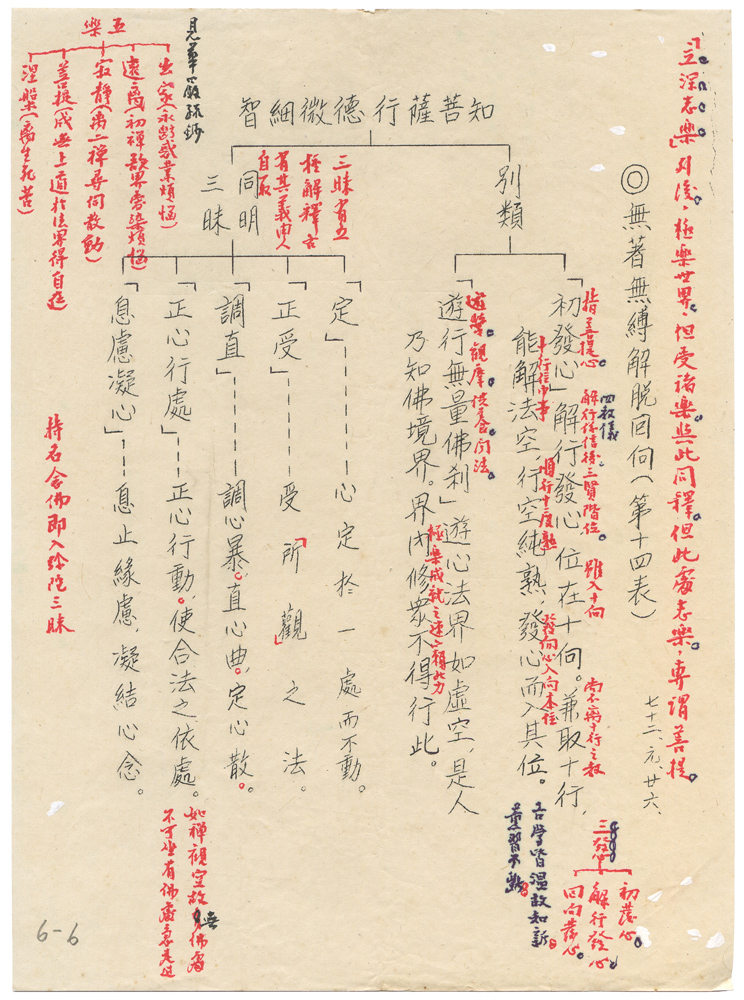 「立深志樂」列後，極樂世界，但受諸樂，與此同釋。但此處志樂，專謂菩提。
◎無著無縛解脫回向（第十四表）
七十二、元、廿六、
知菩薩行德微細智
別類
同明三昧
初發心」解行發心，位在十向。兼取十行，
能解法空，行空純熟，發心而入其位。
遊行無量佛剎」遊心法界如虛空，是人
乃知佛境界。界內修眾不得行此。
定」------心定於一處而不動。
正受」----受「所觀」之法。
調直」----調心暴。直心曲。定心散。
正心行處」---正心行動。使合法之依處。
息慮凝心」---息止緣慮，凝結心念。
指菩提心。
四教儀
解行係信後：三賢階位。
雖入十向
尚不離十行之教
十行信中事
順行十度熟
發向心入向本位
三發心
初發心。
解行發心
回向發心。
古學皆溫故知新
薰習不斷
遊學。觀摩。供養。聞法。
極樂成就之速六賴此力
三昧有五
種解釋言
有其義由人
自取
見華嚴疏鈔
五樂
出家（永斷惑業煩惱）
遠離（初禪欲界雜染煩惱）
寂靜（離二禪尋伺散動）
菩提（成無上道於法界得自在）
涅槃（離生死苦）
持名念佛即入彌陀三昧
如禪觀空故無佛處
不可坐有佛處急走過
6-6